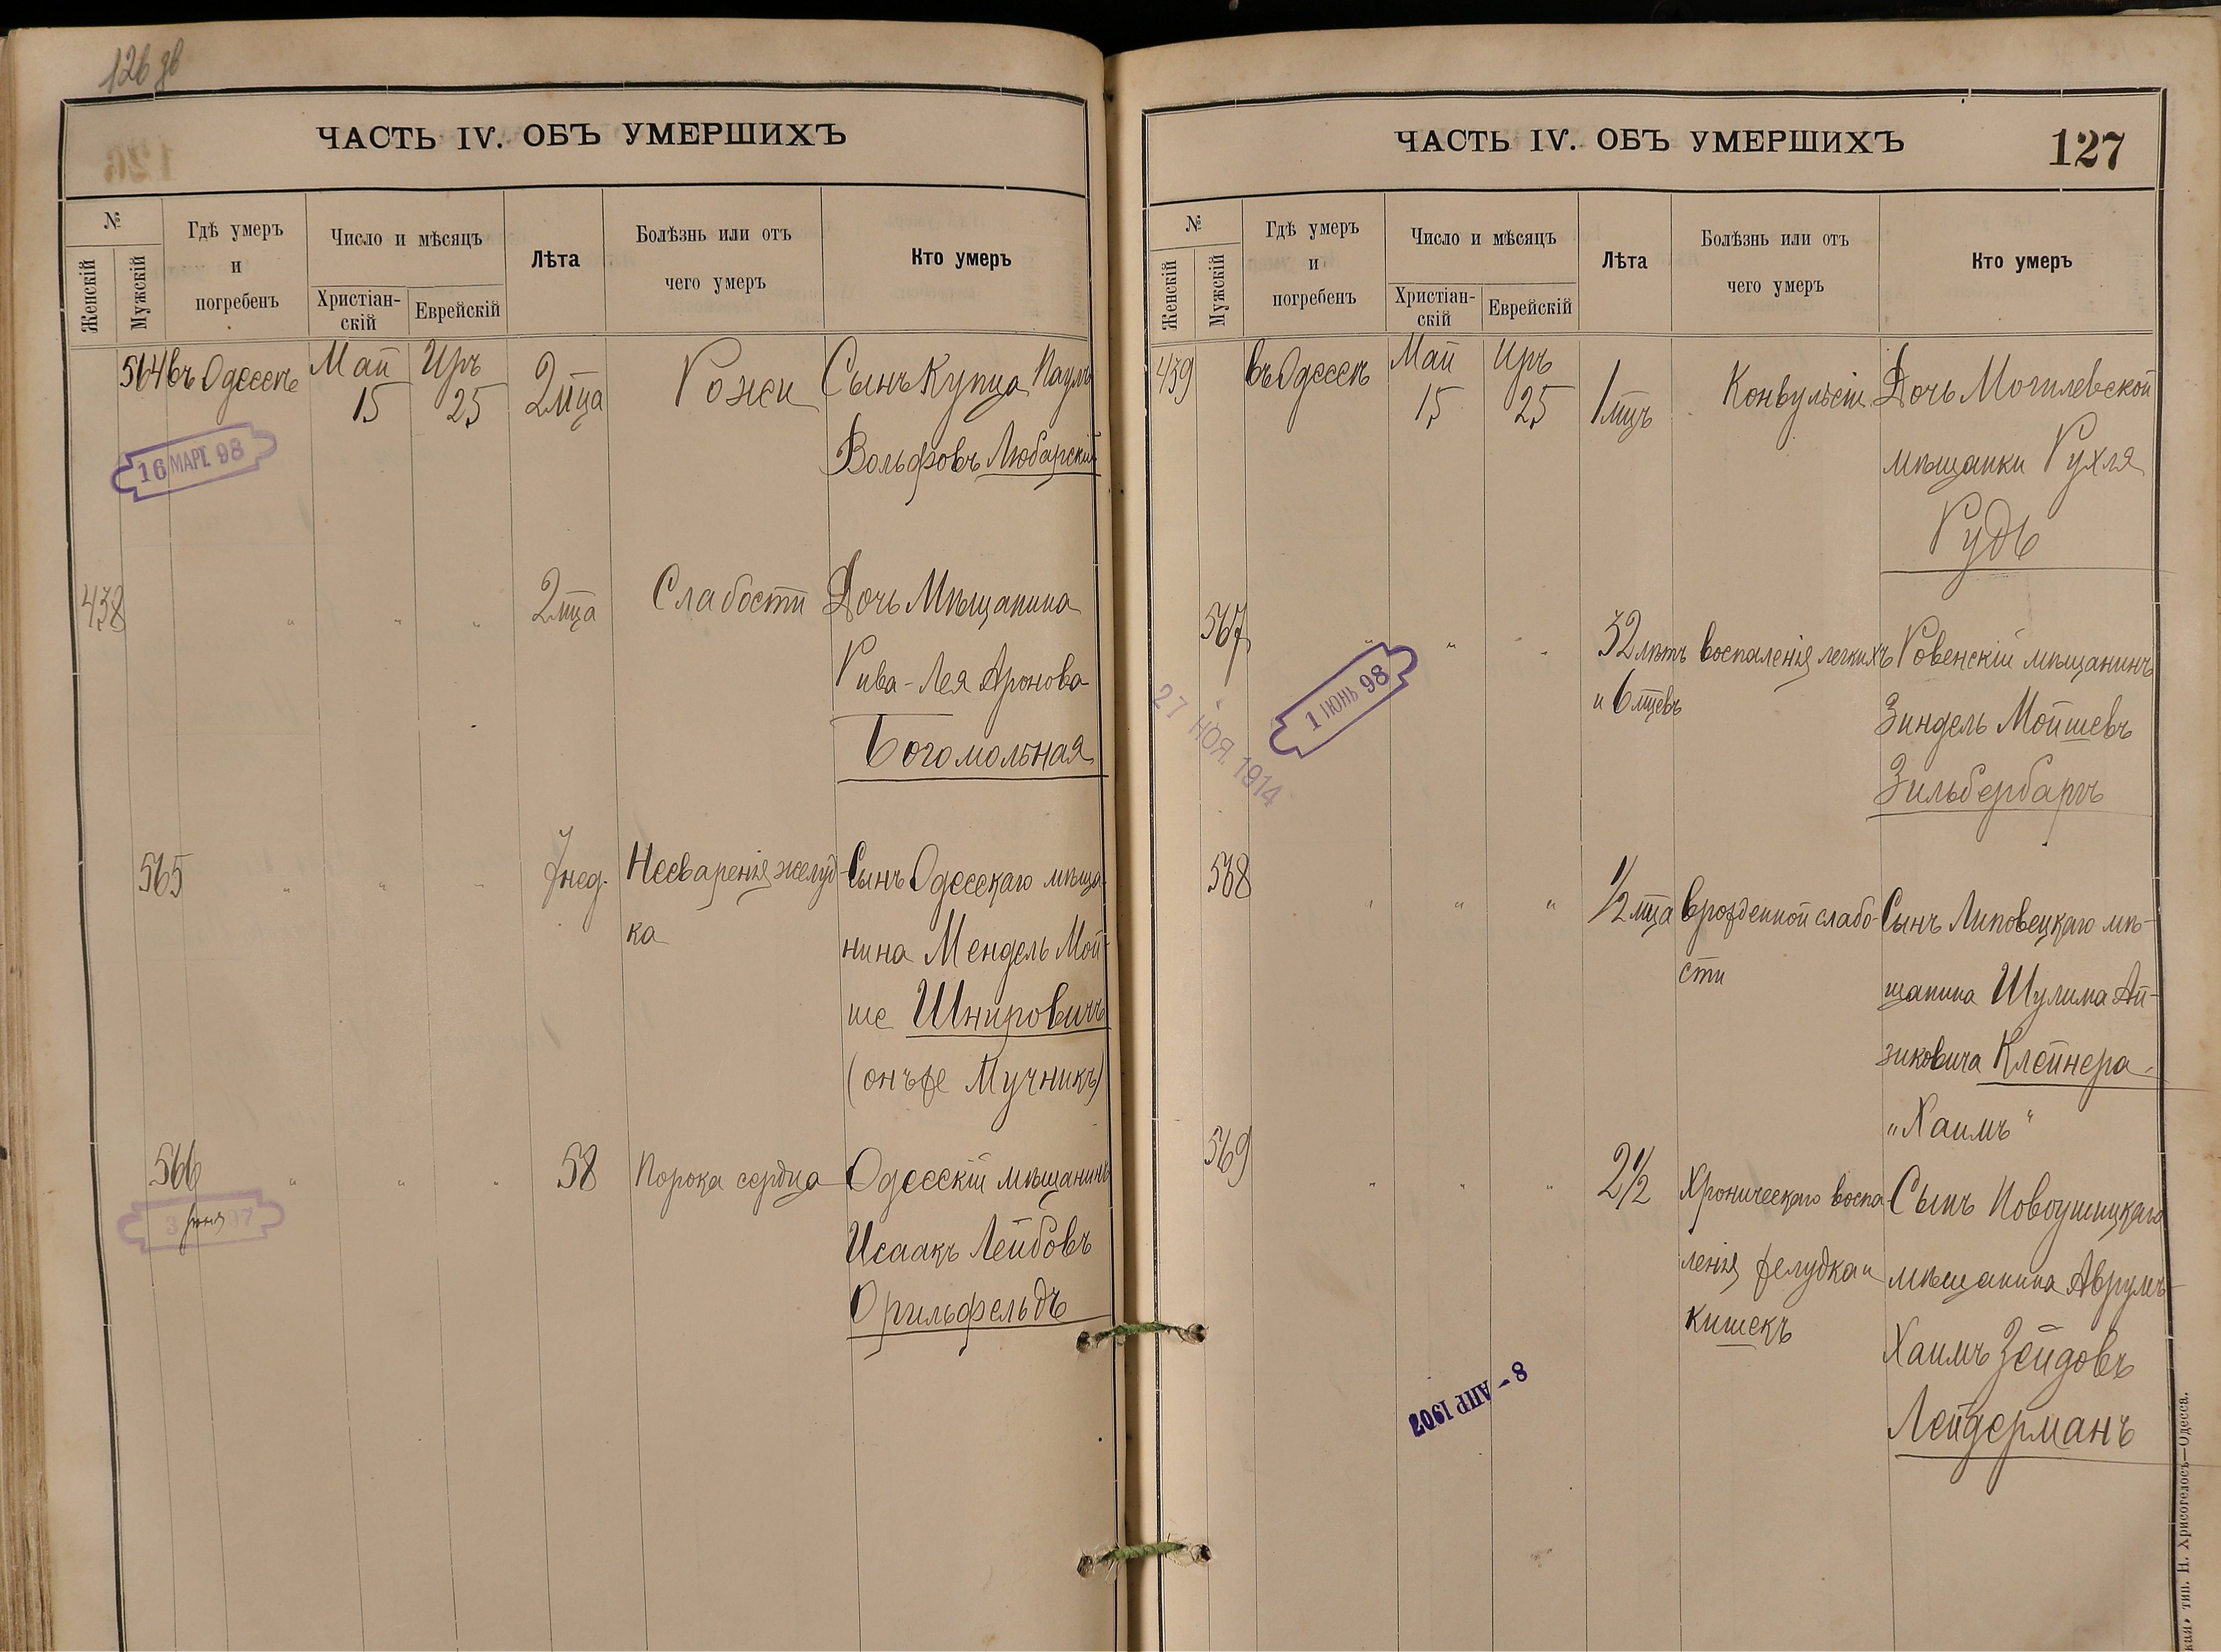 126 об
ЧАСТЬ IV. ОБЪ УМЕРШИХЪ
№
Женскій
Мужскій
Гдѣ умеръ
и
погребенъ
Число и мѣсяцъ
Христіан-
скій
Еврейскій
Лѣта
Болѣзнь или отъ
чего умеръ
Кто умеръ
564 въ Одессѣ Май Иръ 2 мца Рожи Сынъ Купца Наумъ
15 25
Вольфовъ Любарскій
16 МАРТ. 98
438 " " " 2 мца Слабости Дочь Мѣщанина
Рива-Лея Аронова
Богомольная
565 " " " 7 нед. Несваренія желуд Сынъ Одесскаго мѣща-
ка нина Мендель Мой-
ше Шнировичъ
(онъ же Мучникъ)
566 " " " 58 Порока сердца Одесскій мѣщанинъ
3 Іюня 97
Исаакъ Лейбовъ
Орильфельдъ
ЧАСТЬ IV. ОБЪ УМЕРШИХЪ
127
№
Женскій
Мужскій
Гдѣ умеръ
и
погребенъ
Число и мѣсяцъ
Христіан-
скій
Еврейскій
Лѣта
Болѣзнь или отъ
чего умеръ
Кто умеръ
439 въ Одессѣ Май Иръ 1 мцъ Конвульсіи Дочь Могилевской
15 25
мѣщанки Рухля
Рудь
567 " " " 32 лѣтъ воспаленія легкихъ Ровенскій мѣщанинъ
и 6 мцевъ Зиндель Мойшевъ
Зильбербаргъ
1 ІЮНЬ 98
27 НОЯ. 1914
568 " " " 1/2 мца врожденной слабо- Сынъ Липовецкаго мѣ-
сти щанина Шулима Ай-
зиковича Клейнера
„Хаимъ“
569 " " " 2 1/2 Хроническаго воспа Сынъ Новоушицкаго
ленія желудка и мѣщанина Аврумъ-
кишекъ Хаимъ Зейдовъ
Лейдерманъ
8 - АПР 1907
тип. Н. Хрисогелосъ—Одесса.